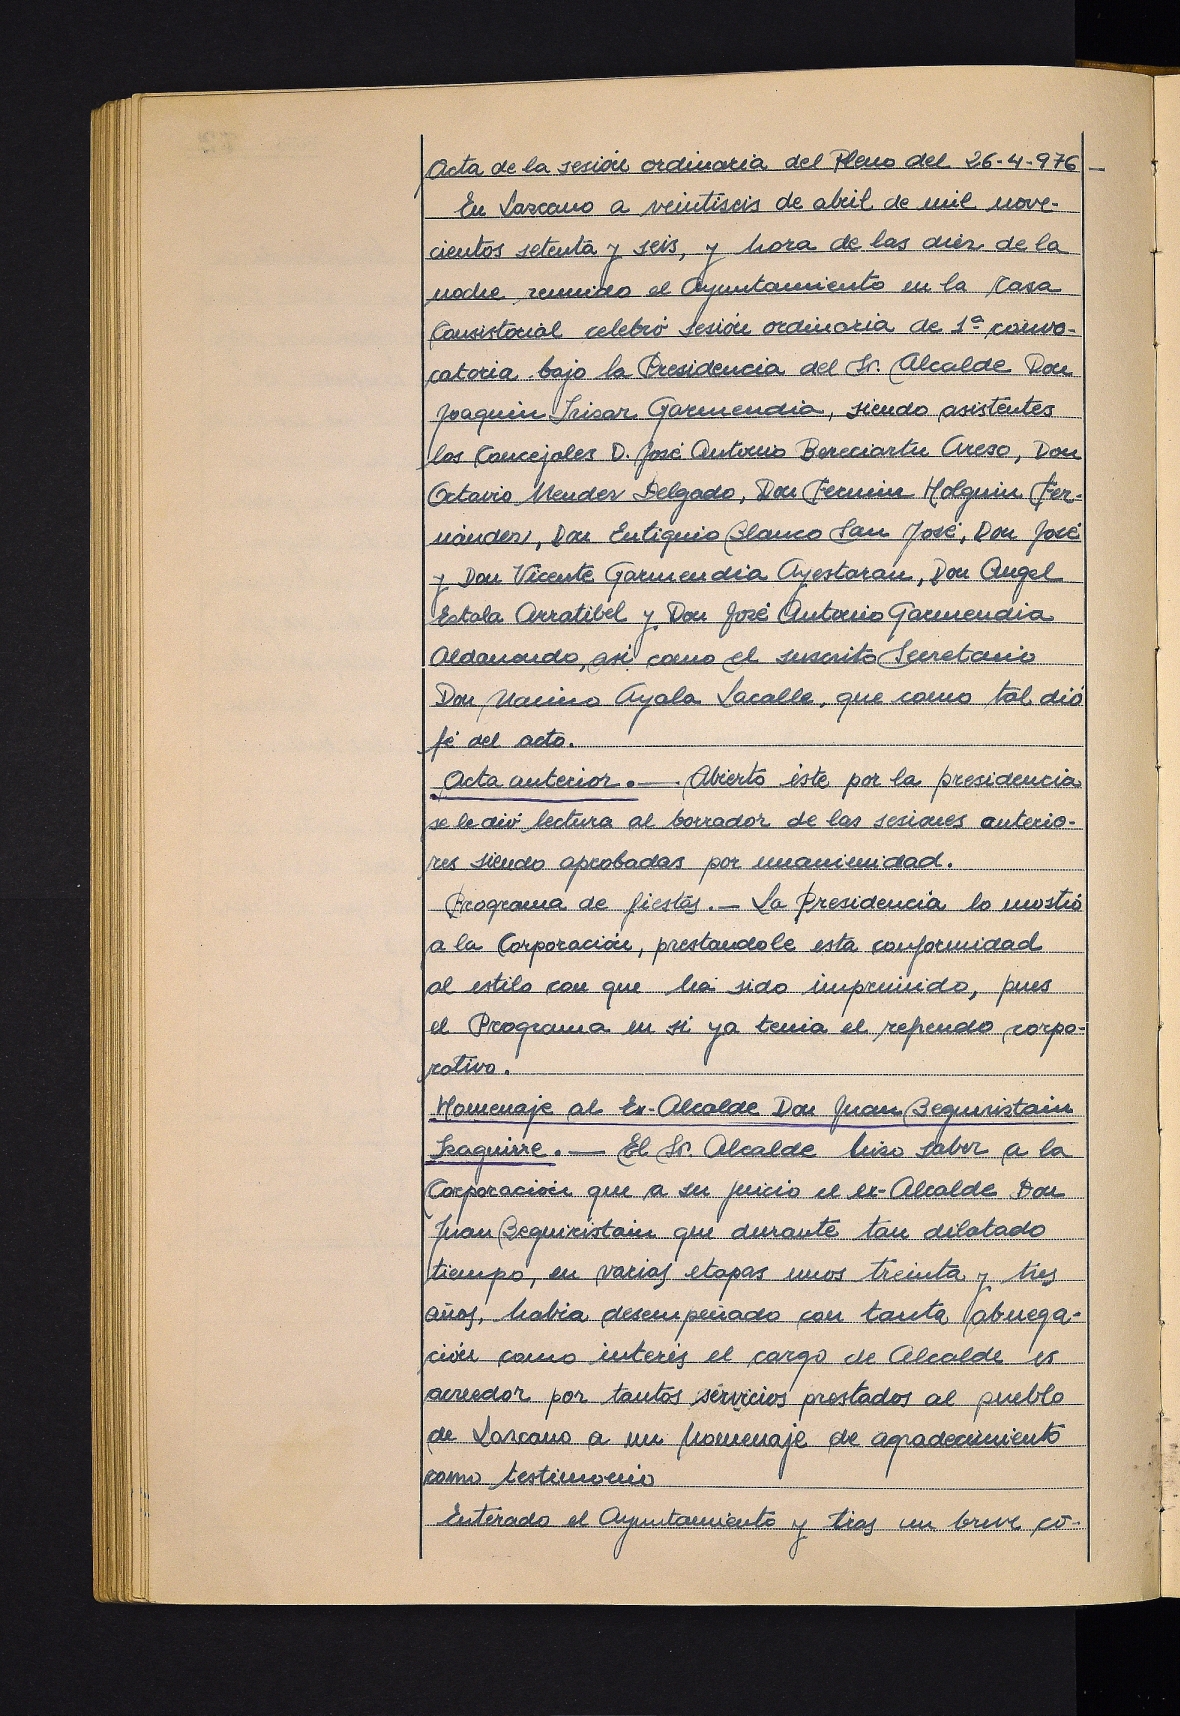 Acta de la sesión ordinaria del Pleno del 26-4-976 —
En Lazcano a veintiseis de abril de mil nove-
cientos setenta y seis, y hora de las diez de la
noche reunido el Ayuntamiento en la Casa
Consistorial celebró sesión ordinaria de 1ª convo-
catoria bajo la Presidencia del Sr. Alcalde Don
Joaquin Irizar Garmendia, siendo asistentes
los Concejales D. José Antonio Bereciartu Areso, Don
Octavio Mendez Delgado, Don Fermin Holguin Fer-
nández, Don Eutiquio Blanco San José, Don José
y Don Vicente Garmendia Ayestaran, Don Angel
Estala Arratibel y Don José Antonio Garmendia
Aldanondo, asi como el suscrito Secretario
Don Ayala Lacalle, que como tal dió
fé del acto.
Acta anterior. — Abierto éste por la presidencia
se le dió lectura al borrador de las sesiones anterio-
res siendo aprobadas por unanimidad.
Programa de fiestas. — La Presidencia lo mostró
a la Corporación, prestandole esta conformidad
al estilo con que ha sido imprimido, pues
el Programa en si ya tenia el refrendo corpo-
rativo.
Homenaje al Ex-Alcalde Don Juan Beguiristain
Izaguirre. — El Sr. Alcalde hizo saber a la
Corporación que a su juicio el ex-Alcalde Don
Juan Beguiristain que durante tan dilatado
tiempo, en varias etapas unos treinta y tres
años, habia desempeñado con tanta abnega-
ción como interés el cargo de Alcalde es
acreedor por tantos servicios prestados al pueblo
de Lazcano a un homenaje de agradecimiento
como testimonio
Enterado el Ayuntamiento y tras un breve co-